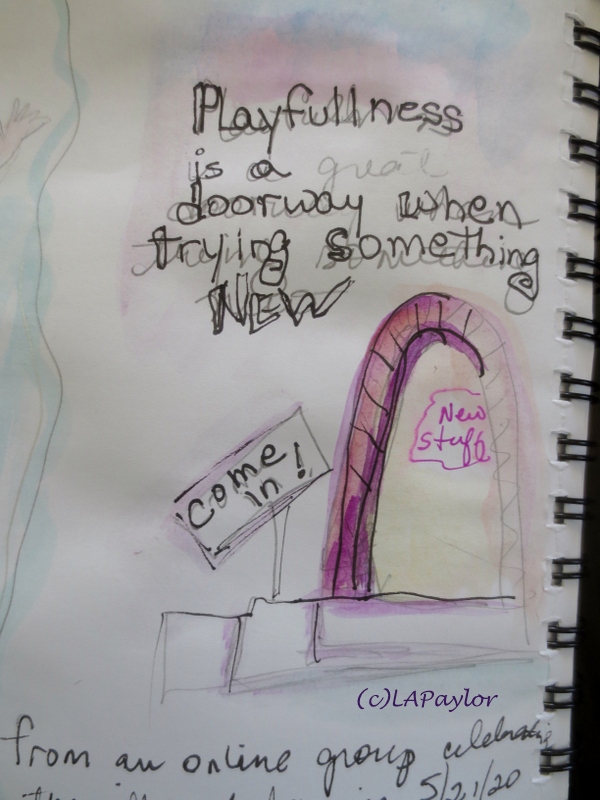 Playfullness
is a great
doorway when
trying something
NEW
New
stuff
Come
in!
(c)LAPaylor
from an online group celebrating
5/21/20